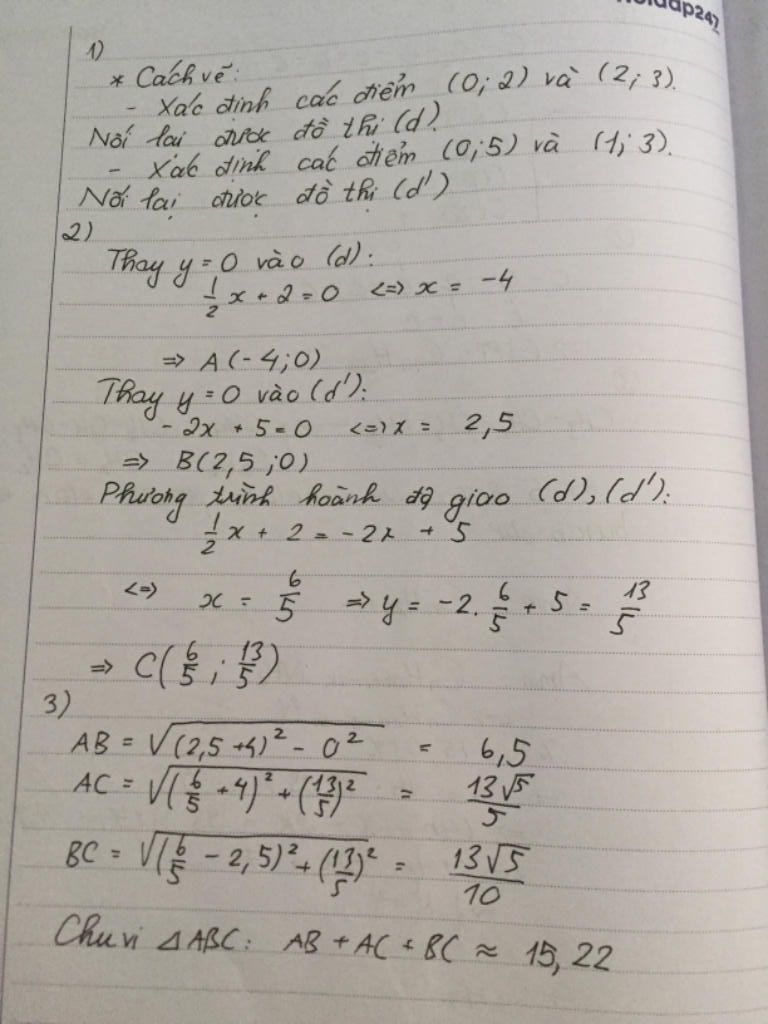 Hoidap247
1)
* Cách vẽ:
- Xác định các điểm (0; 2) và (2; 3).
Nối lại được đồ thị (d).
- Xác định các điểm (0; 5) và (1; 3).
Nối lại được đồ thị (d')
2)
Thay y = 0 vào (d):
1/2 x + 2 = 0 <=> x = -4
=> A(-4; 0)
Thay y = 0 vào (d'):
- 2x + 5 = 0 <=> x = 2,5
=> B(2,5 ; 0)
Phương trình hoành độ giao (d), (d'):
1/2 x + 2 = -2x + 5
<=> x = 6/5 => y = -2. 6/5 + 5 = 13/5
=> C(6/5 ; 13/5)
3)
AB = √((2,5 + 4)² - 0²) = 6,5
AC = √((6/5 + 4)² + (13/5)²) = 13√5/5
BC = √((6/5 - 2,5)² + (13/5)²) = 13√5/10
Chu vi △ABC: AB + AC + BC ≈ 15,22